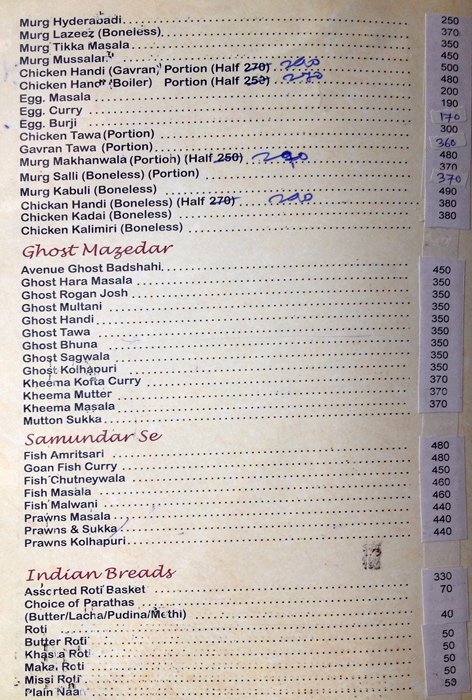 Murg Hyderabadi 250
Murg Lazeez (Boneless) 370
Murg Tikka Masala 350
Murg Mussalam 450
Chicken Handi (Gavran) Portion (Half 270) 500
Chicken Handi (Boiler) Portion (Half 250) 270 480
Egg. Masala 200
Egg. Curry 190
Egg. Burji 170
Chicken Tawa (Portion) 300
Gavran Tawa (Portion) 360
Murg Makhanwala (Portion) (Half 250) 480
Murg Salli (Boneless) (Portion) 370
Murg Kabuli (Boneless) 370
Chickan Handi (Boneless) (Half 270) 490
Chicken Kadai (Boneless) 380
Chicken Kalimiri (Boneless) 380
Ghost Mazedar
Avenue Ghost Badshahi 450
Ghost Hara Masala 350
Ghost Rogan Josh 350
Ghost Multani 350
Ghost Handi 350
Ghost Tawa 350
Ghost Bhuna 350
Ghost Sagwala 350
Ghost Kolhapuri 350
Kheema Kofta Curry 370
Kheema Mutter 370
Kheema Masala 370
Mutton Sukka
Samundar Se
Fish Amritsari 480
Goan Fish Curry 480
Fish Chutneywala 450
Fish Masala 460
Fish Malwani 460
Prawns Masala 440
Prawns & Sukka 440
Prawns Kolhapuri 440
Indian Breads
Assorted Roti Basket 330
Choice of Parathas 70
(Butter/Lacha/Pudina/Methi)
Roti 40
Butter Roti 50
Khasta Roti 50
Makai Roti 50
Missi Roti 50
Plain Naan 50